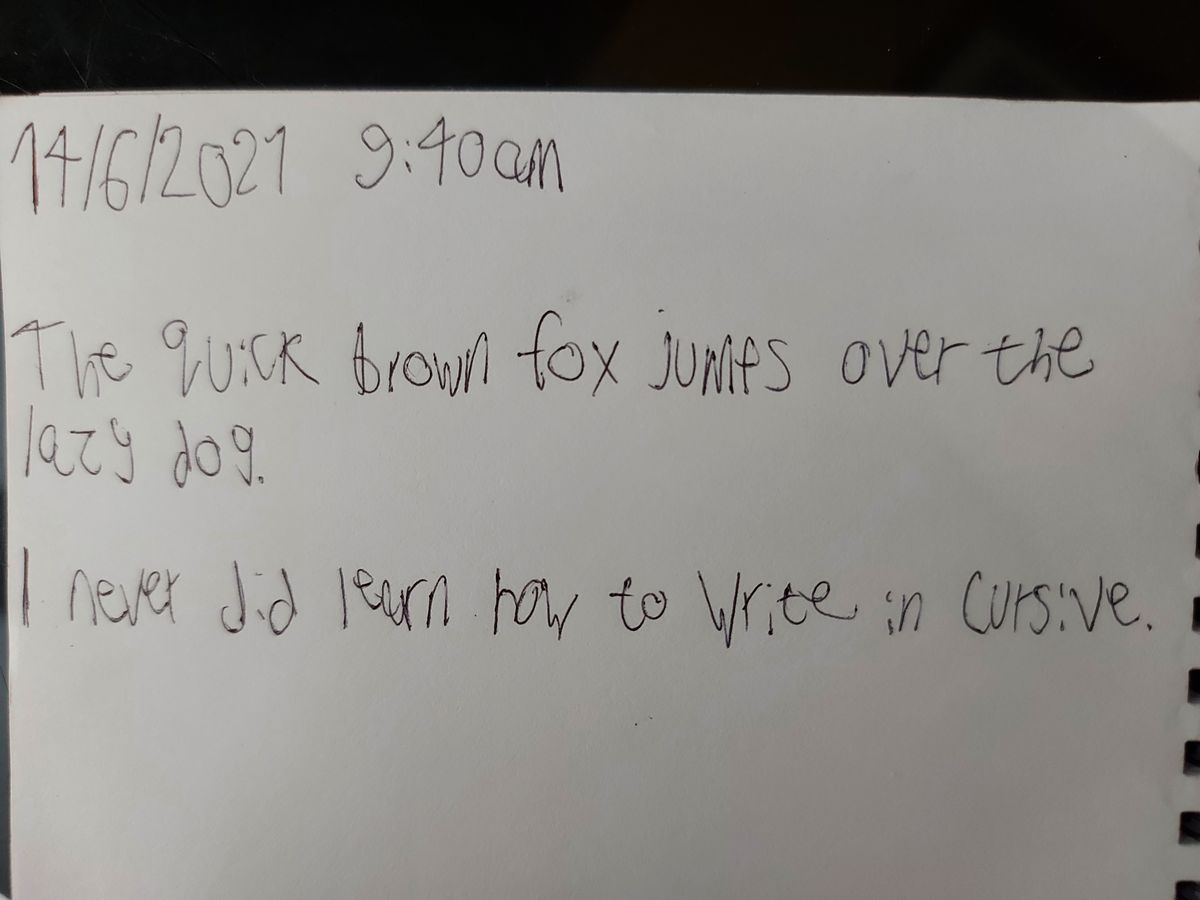 14/6/2021 9:40am
The quick brown fox jumps over the
lazy dog.
I never did learn how to write in cursive.